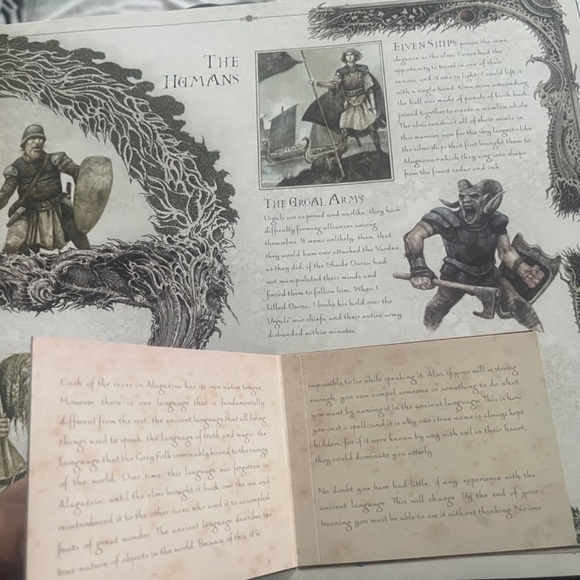 THE
HUMANS
ELVEN SHIPS possess the same
elegance as the elves. I once had the
opportunity to travel in one of their
canoes, and it was so light, I could lift it
with a single hand. Even more astounding,
the hull was made of panels of birch bark
joined together to create a seamless whole.
The elves construct all of their vessels in
this manner, save for the very largest—like
the silver ships that first brought them to
Alagaësia—which they sing into shape
from the finest cedar and oak.
THE URGAL ARMY
Urgals are so proud and warlike, they have
difficulty forming alliances among
themselves. It seems unlikely, then, that
they would have ever attacked the Varden,
as they did, if the Shade Durza had
not manipulated their minds and
forced them to follow him. When I
killed Durza, I broke his hold over the
Urgals' war chiefs, and their entire army
disbanded within minutes.
Each of the races in Alagaësia has its own native tongue.
However, there is one language that is fundamentally
different from the rest: the ancient language that all living
things used to speak, the language of truth and magic, the
language that the Grey Folk irrevocably bound to the energy
of the world. Over time, this language was forgotten in
Alagaësia, until the elves brought it back over the sea and
reintroduced it to the other races, who used it to accomplish
feats of great wonder. The ancient language describes the
true nature of objects in the world. Because of this, it is
impossible to lie while speaking it. Also, if your will is strong
enough, you can compel someone or something to do what
you want by naming it in the ancient language. This is how
you cast a spell, and it is why one's true name is always kept
hidden, for if it were known by any with evil in their heart,
they could dominate you utterly.
No doubt you have had little, if any, experience with the
ancient language. This will change. By the end of your
training you must be able to use it without thinking. No one